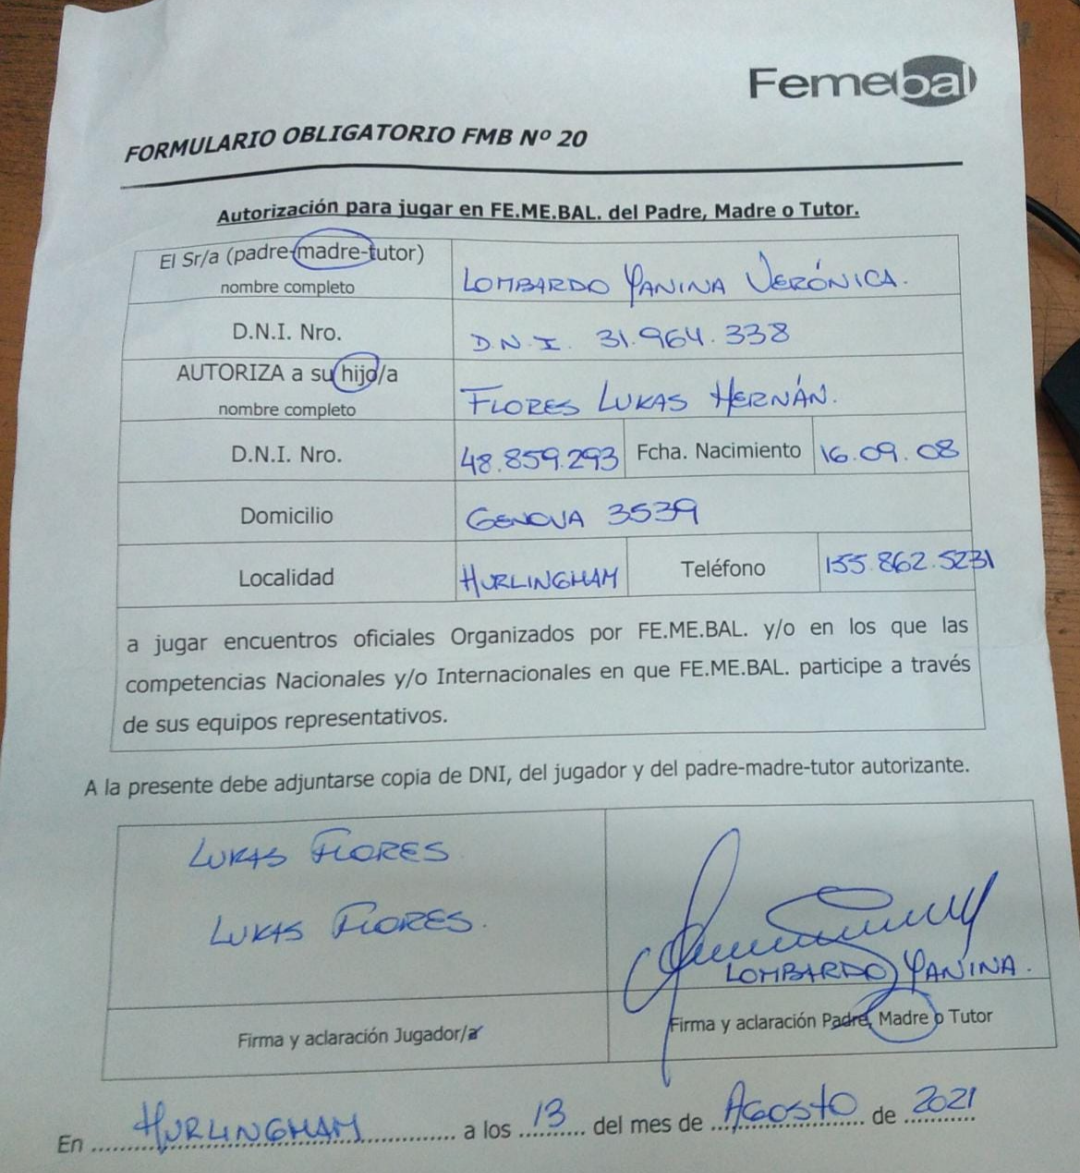 Femebal
FORMULARIO OBLIGATORIO FMB Nº 20
Autorización para jugar en FE.ME.BAL. del Padre, Madre o Tutor.
El Sr/a (padre-madre-tutor)
nombre completo
LOMBARDO YANINA VERÓNICA.
D.N.I. Nro.
D.N.I. 31.964.338
AUTORIZA a su hijo/a
nombre completo
FLORES LUKAS HERNÁN.
D.N.I. Nro.
48.859.293
Fcha. Nacimiento
16.09.08
Domicilio
GENOVA 3539
Localidad
HURLINGHAM
Teléfono
155.862.5231
a jugar encuentros oficiales Organizados por FE.ME.BAL. y/o en los que las
competencias Nacionales y/o Internacionales en que FE.ME.BAL. participe a través
de sus equipos representativos.
A la presente debe adjuntarse copia de DNI, del jugador y del padre-madre-tutor autorizante.
LUKAS FLORES
LUKAS FLORES.
LOMBARDO YANINA.
Firma y aclaración Jugador/a
Firma y aclaración Padre, Madre o Tutor
En HURLINGHAM a los 13 del mes de AGOSTO de 2021